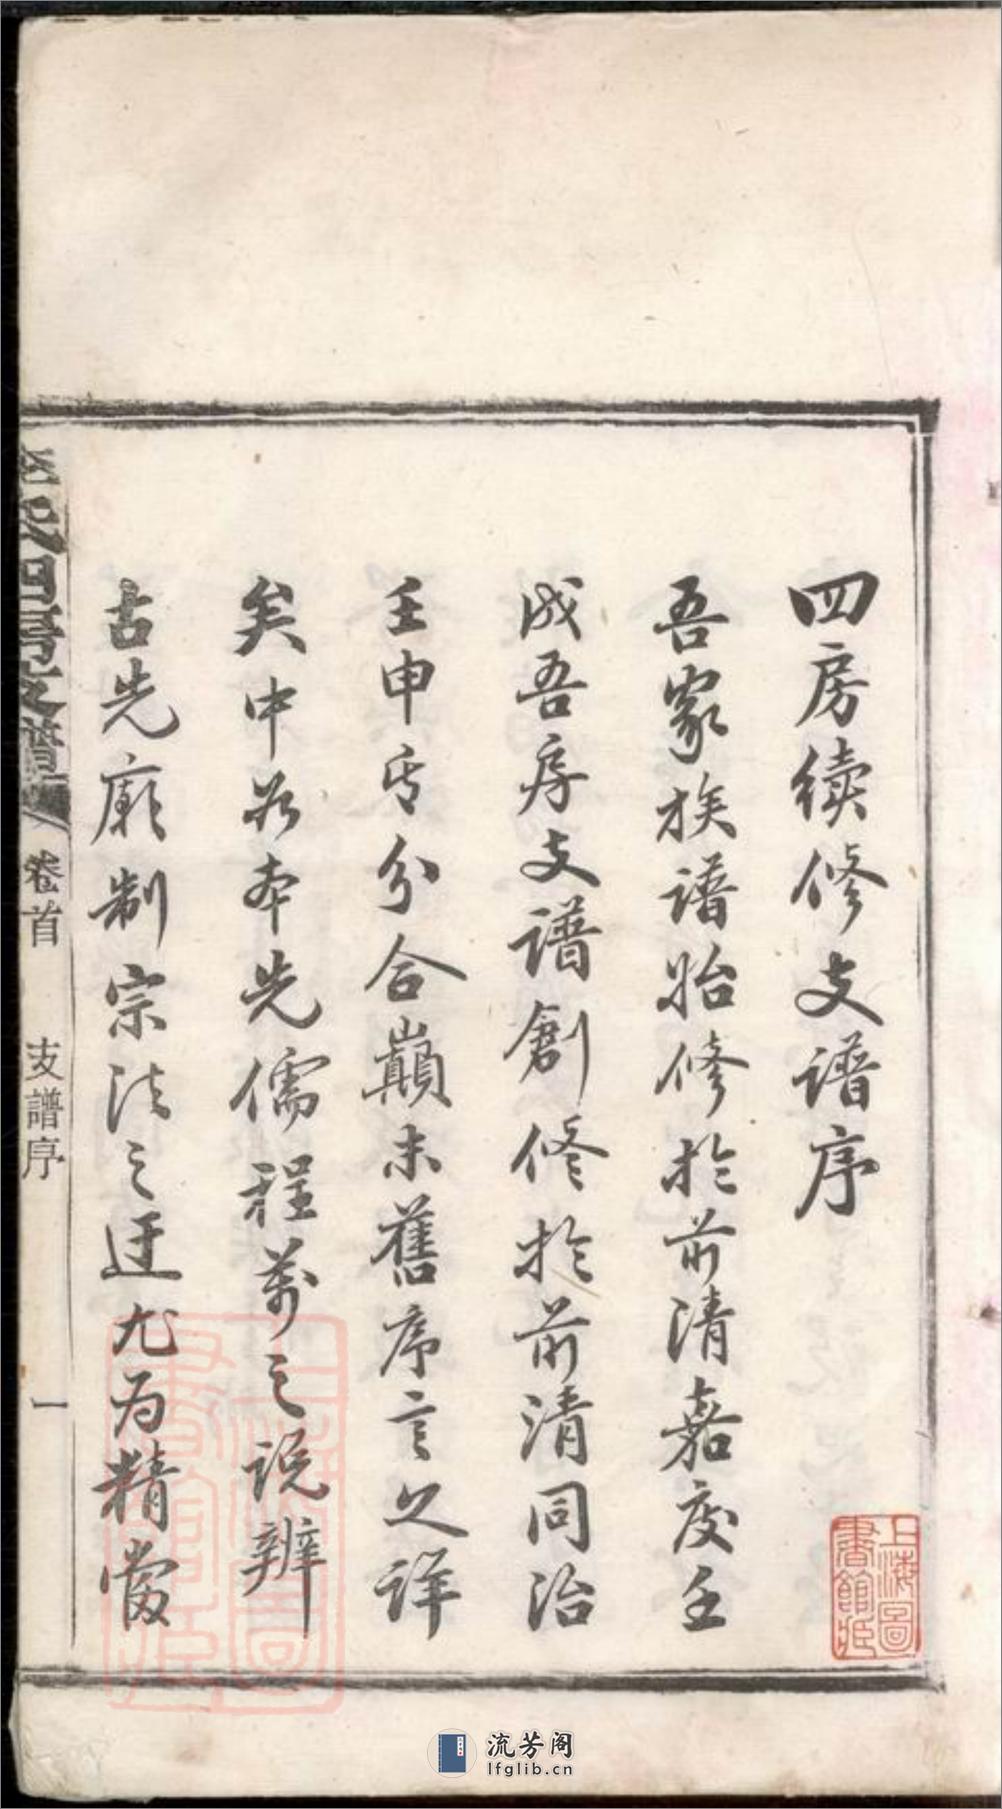 四房續修支譜序
吾家族譜始修於前清嘉慶壬
戌吾房支譜創修於前清同治
壬申其分合巔末舊序言之詳
矣中若本先儒程萬之說辨
古先廟制宗法之迂尤為精當
氏四房支譜
卷首
支譜序
一
上海圖書館藏
流芳阁
lfglib.cn